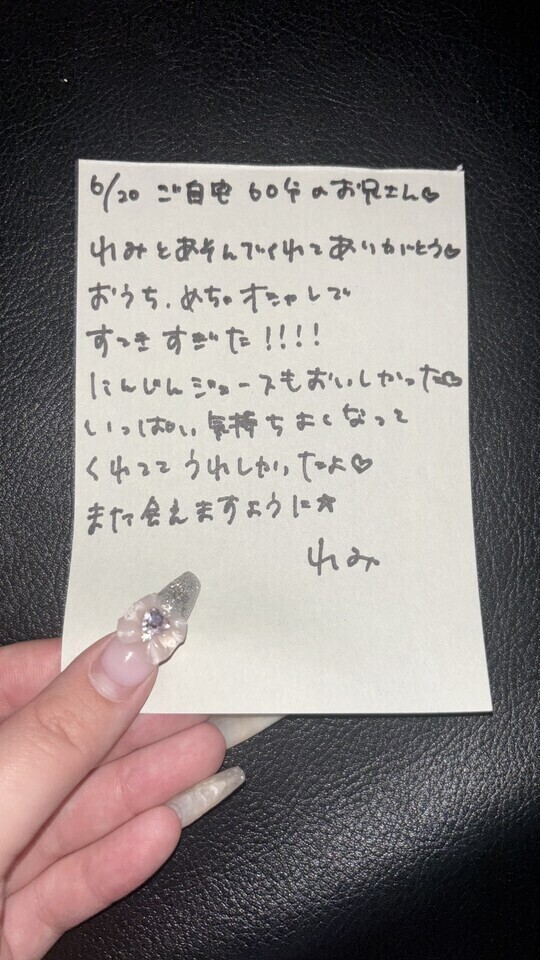 6/20 ご自宅 60分のお兄さん♡
れみとあそんでくれてありがとう♡
おうち、めちゃオシャレで
すてきすぎた!!!!
にんじんジュースもおいしかった♡
いっぱい気持ちよくなって
くれててうれしかったよ♡
また会えますように☆
れみ